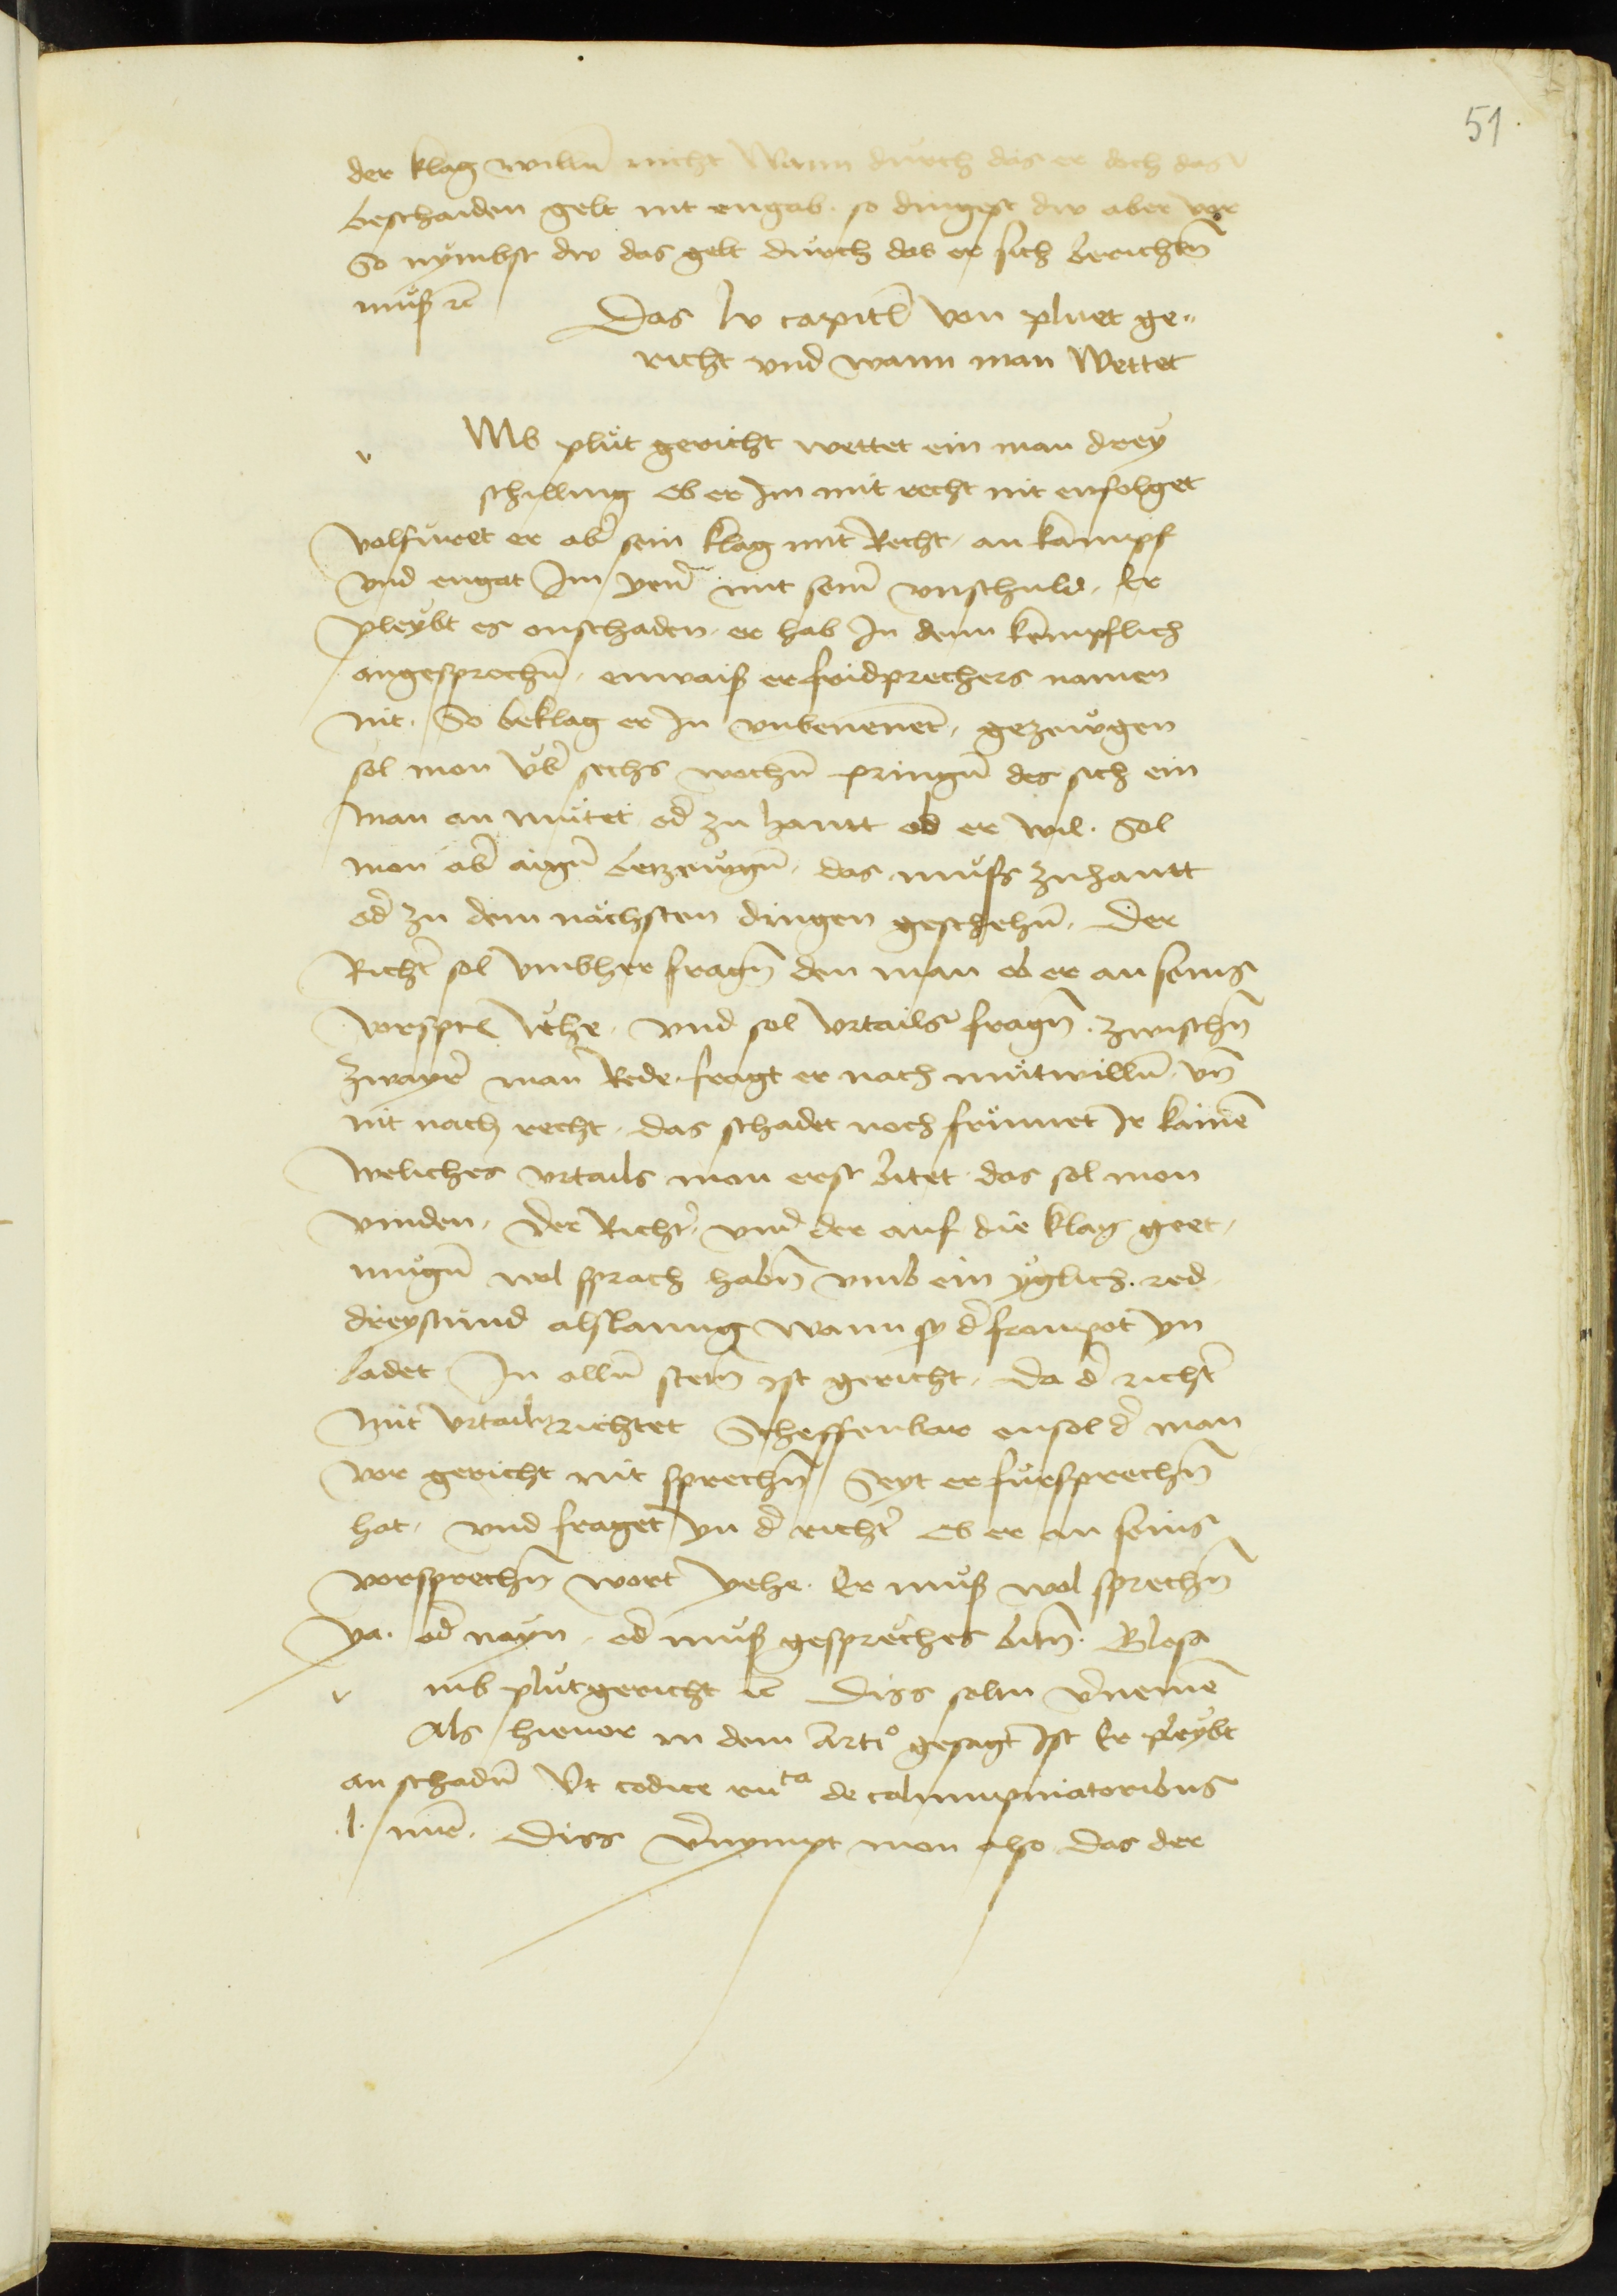 51.
der klag willn̄ nicht Wann durch das er dich das
beschaiden gelt nit engab. so dingest dw aber vor
So nÿmbst dw das gelt durch das er sich berichtn̄
muͦß ⁊c̄
Das lv capitl̄ von pluet ge=
richt vnd wann man Wettet
v Mb pluͦt gericht wettet ein man dreÿ
schilling Ob er Im mit recht nit enfolget
volfuret er ab̄ sein klag mit Recht, an kampf
vnd engat Im yen̄ mit sein̄ vnschuld, Er
pleybt es onschaden, er hab In denn kempflich
angesprochn̄, enwaiß er fridprechers namen
nit. So beklag er In vnbenenet̄, gezeuͦgen
sol mon uͦb̄ sechs wochn̄ pringn̄ des sich ein
man an muͦtet od̄ zu hantt ob er wil. Sol
mon ab̄ aign̄ betzeuͦgn̄, das muͦss zuhantt
od̄ zu dem nächsten dingen geschehn̄. Der
Richt̄ sol vmbher fragn̄ den man ob er an seins
vorspren̄ uͤhe, vnd sol vrtails fragn̄. zwischn̄
zwayr̄ man̄ Rede. fragt er nach muͦtwilln̄ vn̄
nit nach recht, das schadet noch frumet Ir kainē
weliches vrtails mon erst bitet das sol mon
vinden. Der Richt̄, vnd der auf die klag geet,
muͦgn̄ wol sprach habn̄ vmb ein yglich. red
dreystund alslanng wann sy d̄ fronpot yn
ladet In alln̄ stetn̄ ist gericht, da d̄ richt̄
mit vrtailn̄ richtet Scheffenbar ensol d̄ man
vor gericht nit sprechn̄ Seyt er fuͦrsprechn̄
hat, vnd fraget yn d̄ richt̄ Ob er an seins
vorsprechn̄ wort yehe. Er muͦß wol sprechn̄
ya. od̄ nayn, od̄ muͦß gespreches bitn̄. Glosa
v mb pluͦtgericht ⁊c̄ Diss soltu v̄nemē
Als hieuor in dem Arti° gesagt Ist Er pleybt
an schadn̄ Vt codice de calumpniatoribus
.l. Diss v̄nympt mon also das der